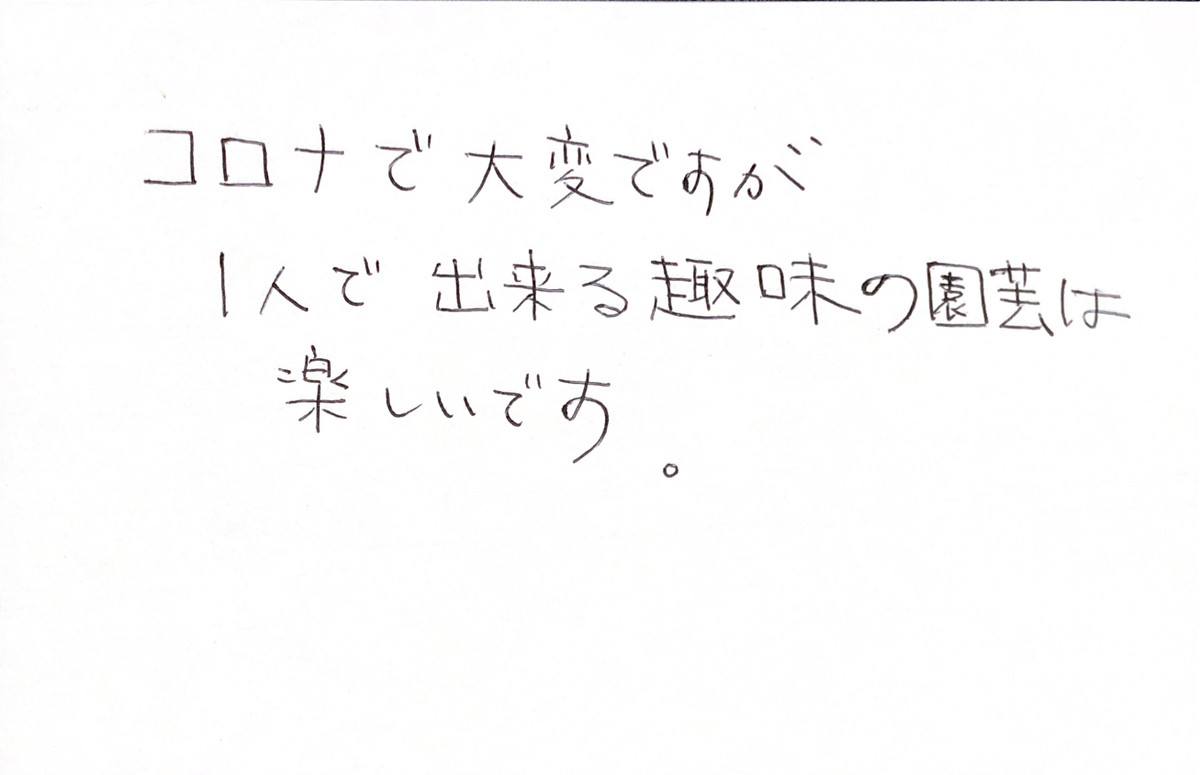 コロナで大変ですが
1人で出来る趣味の園芸は
楽しいです。